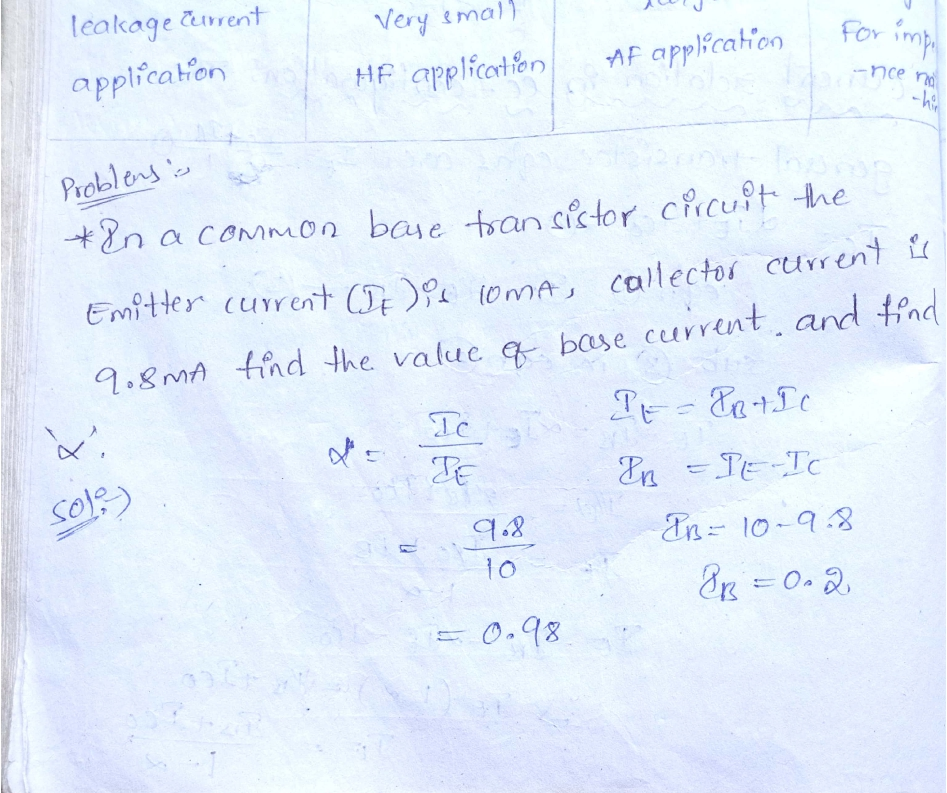 leakage current Very small
application HF application AF application For imp.
-nce
Problems:-
* In a common base transistor circuit the
Emitter current (IE) is 10mA, callector current is
9.8mA find the value of base current. and find
'α'.
sol:-)
α = IC / IE
= 9.8 / 10
= 0.98
IE = IB + IC
IB = IE - IC
IB = 10 - 9.8
IB = 0.2